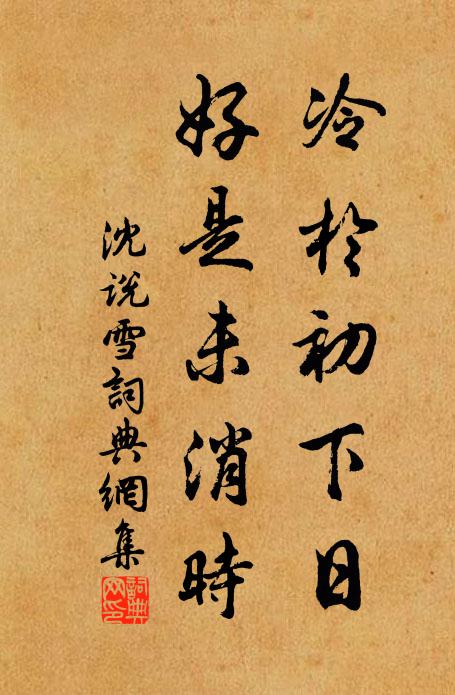 冷於初下日
好是未消時
沈说雪詞典網集
詞典网印